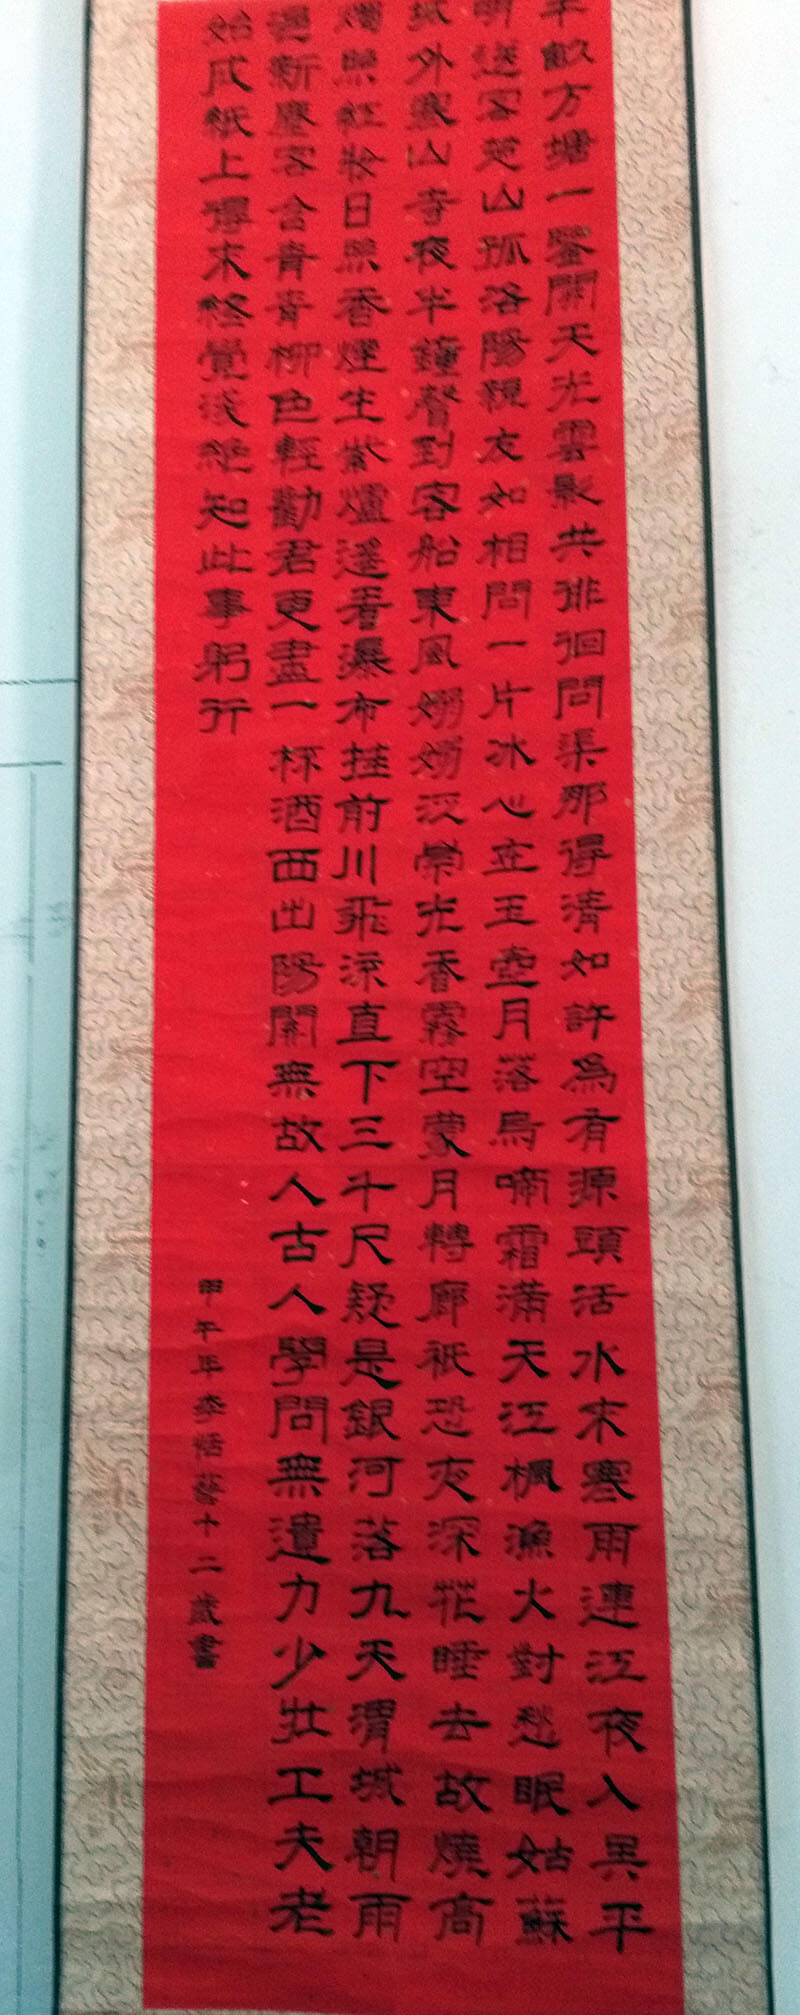 半畝方塘一鑒開天光雲影共徘徊問渠那得清如許為有源頭活水來寒雨連江夜入吳平
明送客楚山孤洛陽親友如相問一片冰心在玉壺月落烏啼霜滿天江楓漁火對愁眠姑蘇
城外寒山寺夜半鐘聲到客船東風嫋嫋泛崇光香霧空蒙月轉廊祇恐夜深花睡去故燒高
燭照紅妝日照香煙生紫爐遙看瀑布挂前川飛流直下三千尺疑是銀河落九天渭城朝雨
浥新塵客舍青青柳色輕勸君更盡一杯酒西出陽關無故人古人學問無遺力少壯工夫老
始成紙上得來終覺淺絕知此事躬行
甲午年李恬藝十二歲書